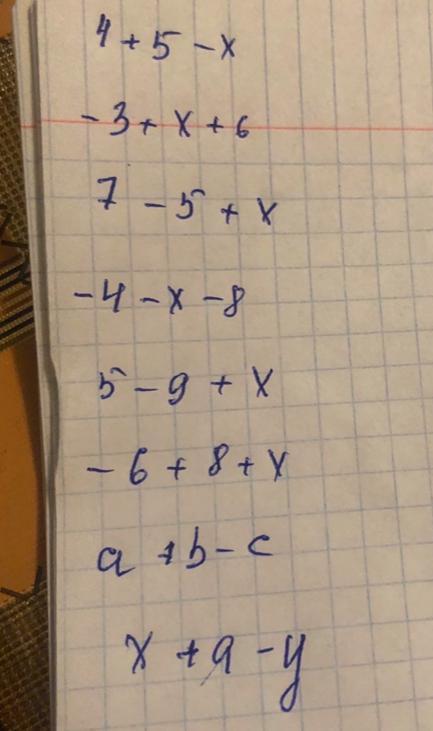 4 + 5 - x
- 3 + x + 6
7 - 5 + x
- 4 - x - 8
5 - 9 + x
- 6 + 8 + x
a + b - c
x + a - y